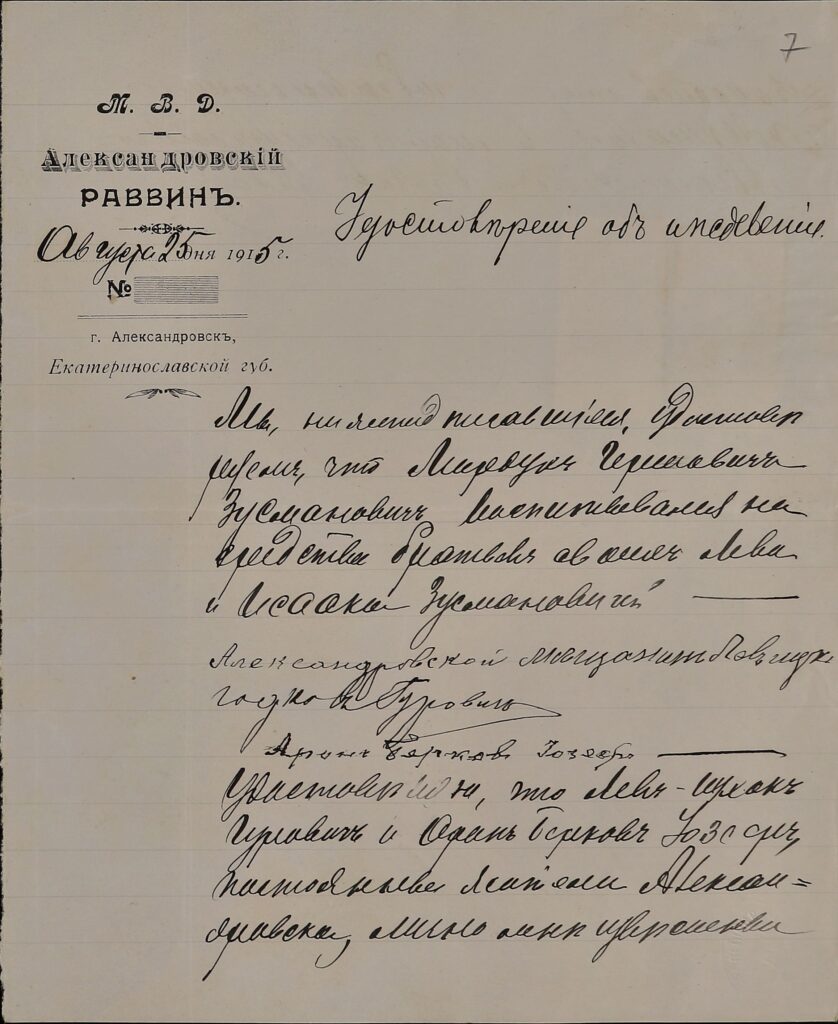 7
М. В. Д.
Александровскій
РАВВИНЪ.
Августа 25 дня 1915 г.
№
г. Александровскъ,
Екатеринославской губ.
Удостовѣреніе объ иждевеніи.
Мы, нижеподписавшіеся, удостовѣ
ряемъ, что Мордухъ Гершовичъ
Зусмановичъ воспитывался на
средства братьевъ своихъ Лева
и Исаака Зусмановичей
Александровской мещанинъ Левъ ицхо
Гуровичъ
Аронъ Берковъ Іозефъ
Удостовѣряю, что Левъ-Ицхокъ
Гуровичъ и Аронъ Берковъ Іозефъ,
постоянные жители Алексан=
дровска, лично мнѣ извѣстны